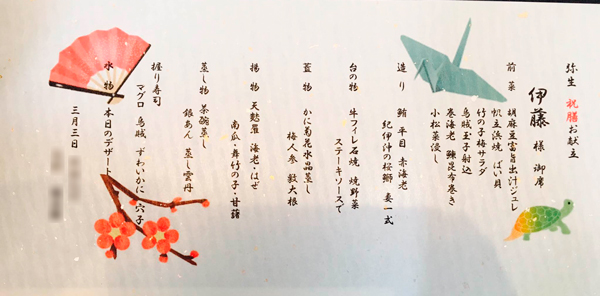 弥生 祝膳 お献立
伊藤 様 御席
前菜 胡麻豆富旨出汁ジュレ
帆立浜焼 ばい貝
竹の子梅サラダ
烏賊玉子射込
巻海老 鰊昆布巻き
小松菜浸し
造り 鮪 平目 赤海老
紀伊沖の桜鯛 妻一式
台の物 牛フィレ石焼 焼野菜
ステーキソースで
蓋物 かに菊花水晶蒸し
梅人参 鼓大根
揚物 天麩羅 海老・はぜ
南瓜・舞竹の子・甘藷
蒸し物 茶碗蒸し
銀あん 蒸し雲丹
握り寿司
マグロ 烏賊 ずわいかに 穴子
水物 本日のデザート
三月三日